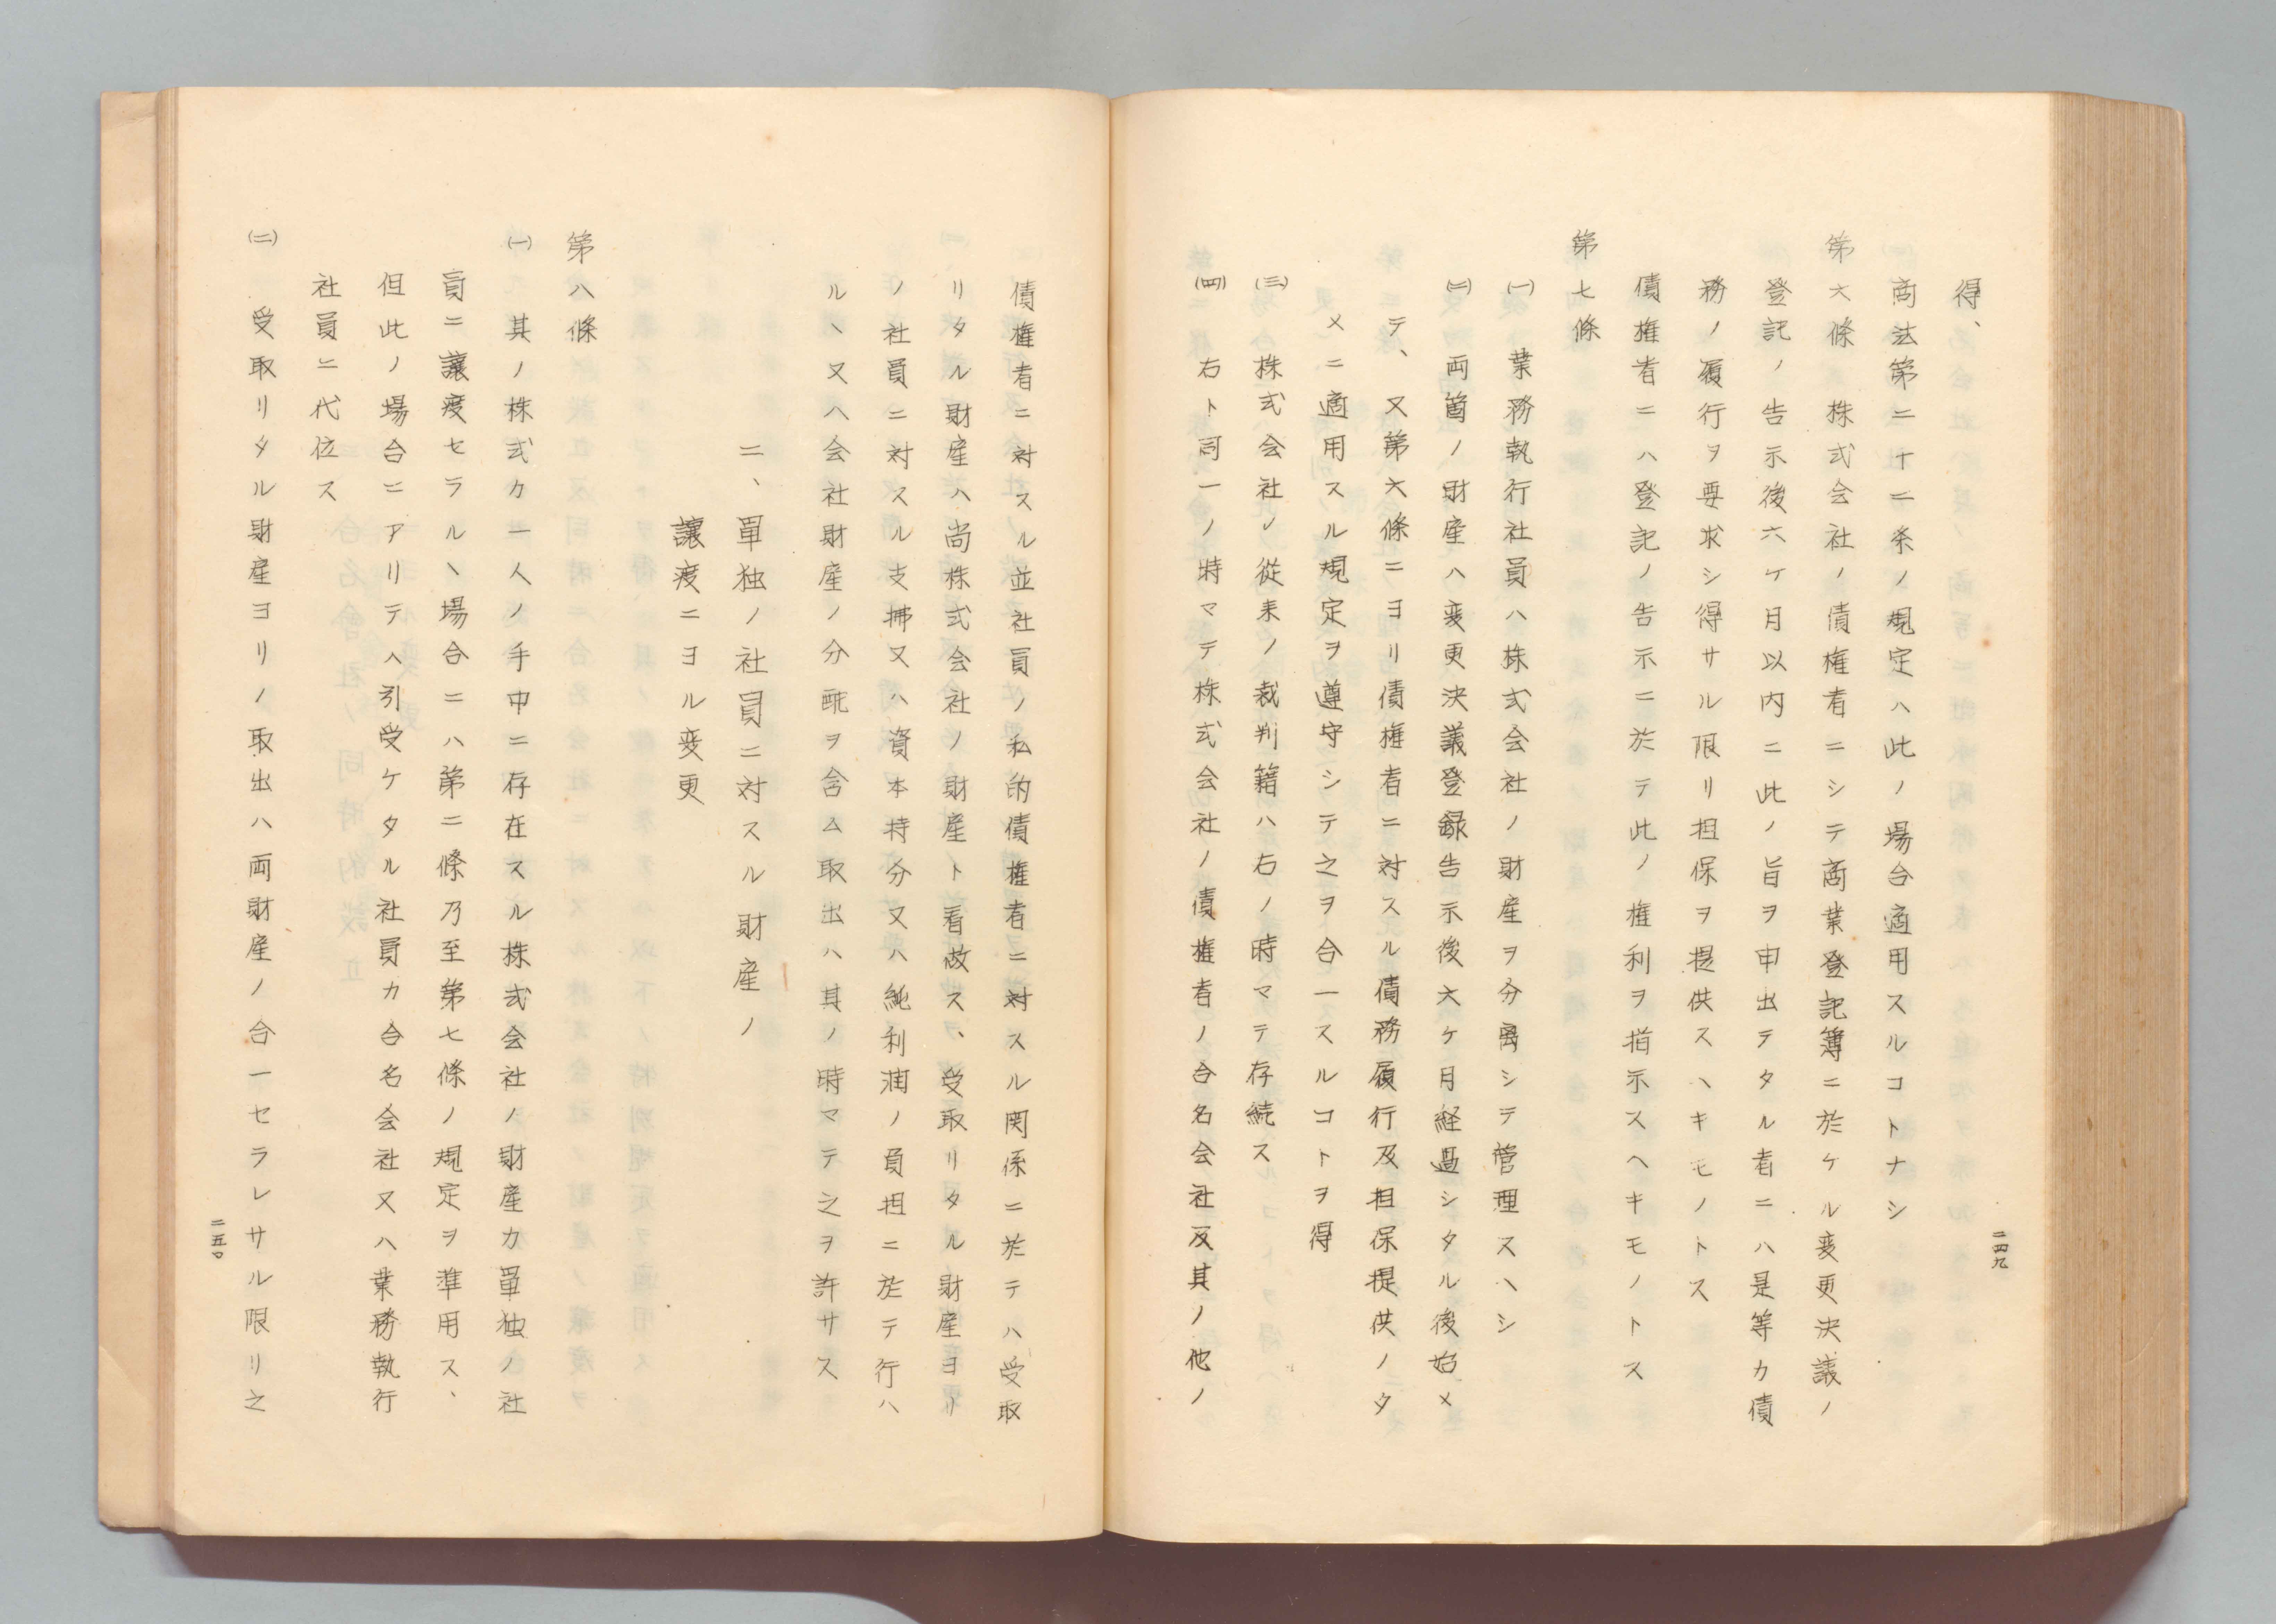 得、
商法第二十二条ノ規定ハ此ノ場合適用スルコトナシ
第六條　株式会社ノ債権者ニシテ商業登記簿ニ於ケル変更決議ノ
登記ノ告示後六ケ月以内ニ此ノ旨ヲ申出テタル者ニハ是等カ債
務ノ履行ヲ要求シ得サル限リ担保ヲ提供スヘキモノトス
債権者ニハ登記ノ告示ニ於テ此ノ権利ヲ指示スヘキモノトス
第七條
㈠　業務執行社員ハ株式会社ノ財産ヲ分离シテ管理スヘシ
㈡　両箇ノ財産ハ変更決議登録告示後六ケ月経過シタル後始メ
テ、又第六條ニヨリ債権者ニ対スル債務履行及担保提供ノタ
メニ適用スル規定ヲ遵守シテ之ヲ合一スルコトヲ得
㈢　株式会社ノ従来ノ裁判籍ハ右ノ時マテ存続ス
㈣　右ト同一ノ時マテ株式会社ノ債権者ノ合名会社反其ノ他ノ
二四九
債権者ニ対スル並社員ノ私的債権者ニ対スル関係ニ於テハ受取
リタル財産ハ尚株式会社ノ財産ト看做ス、受取リタル財産ヨリ
ノ社員ニ対スル支拂又ハ資本持分又ハ純利潤ノ負担ニ於テ行ハ
ルヽ又ハ会社財産ノ分配ヲ含ム取出ハ其ノ時マテ之ヲ許サス
二、単独ノ社員ニ対スル財産ノ
讓渡ニヨル変更
第八條
㈠　其ノ株式カ一人ノ手中ニ存在スル株式会社ノ財産カ単独ノ社
員ニ讓渡セラルヽ場合ニハ第二條乃至第七條ノ規定ヲ準用ス、
但此ノ場合ニアリテハ引受ケタル社員カ合名会社又ハ業務執行
社員ニ代位ス
㈡　受取リタル財産ヨリノ取出ハ両財産ノ合一セラレサル限リ之
二五〇